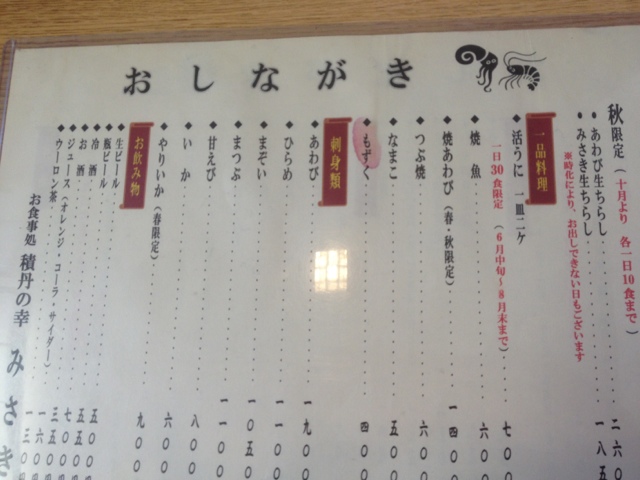 おしながき
秋限定（十月より 各一日10食まで）
・あわび生ちらし 二六〇
・みさき生ちらし 一八五
※時化により、お出しできない日もございます
一品料理
◆活うに 一皿二ケ 七〇
一日30食限定（6月中旬～8月末まで）
◆焼魚 六〇〇
◆焼あわび（春・秋限定） 一四〇〇
◆つぶ焼 六〇〇
◆なまこ 五〇〇
◆もずく 四〇〇
刺身類
◆あわび 一九〇〇
◆ひらめ 一一〇〇
◆まぞい 一〇五〇
◆まつぶ 一一〇〇
◆甘えび
◆いか 八〇〇
◆やりいか（春限定） 六〇〇
お飲み物
◆生ビール
◆瓶ビール
◆冷酒
◆お酒
◆ジュース（オレンジ・コーラ・サイダー）
◆ウーロン茶
お食事処 積丹の幸 みさき